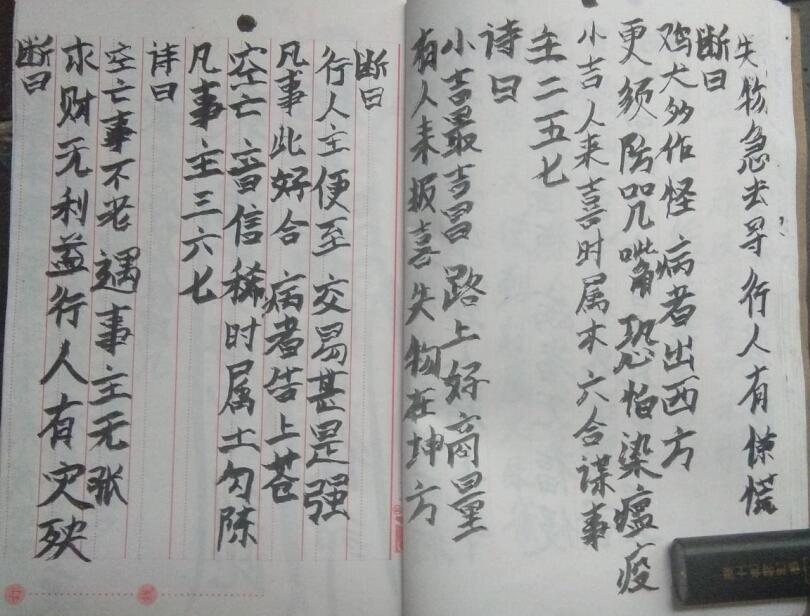 失物急去寻行人有惊慌
断曰
鸡犬多作怪病者出西方
更须防咒嘴恐怕染瘟疫
小吉人来喜时属木六合谋事
主二五七
诗曰
小吉最吉昌路上好商量
有人来报喜失物在坤方
断曰
行人主便至交易甚是强
凡事此好合病者告上苍
空亡音信稀时属土勾陈
凡事主三六七
诗曰
空亡事不老遇事主无张
求财无利益行人有灾殃
断曰